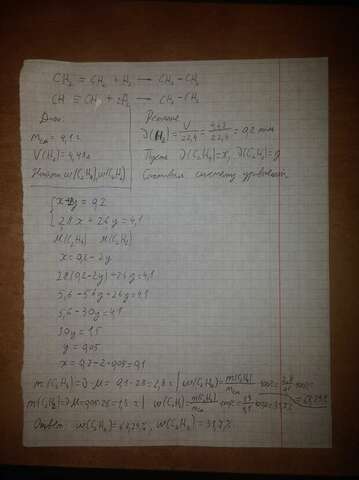 CH₂ = CH₂ + H₂ → CH₃ – CH₃
CH ≡ CH + 2H₂ → CH₃ – CH₃
Дано: Решение
m см = 4,1 г ν(H₂) = V/22,4 = 4,48/22,4 = 0,2 моль
V(H₂) = 4,48 л Пусть ν(C₂H₄) = x, ν(C₂H₂) = y
Найти w(C₂H₄) w(C₂H₂) Составим систему уравнений
{ x + 2y = 0,2
28x + 26y = 4,1
M(C₂H₄) M(C₂H₂)
x = 0,2 - 2y
28(0,2 - 2y) + 26y = 4,1
5,6 - 56y + 26y = 4,1
5,6 - 30y = 4,1
30y = 1,5
y = 0,05
x = 0,2 - 2·0,05 = 0,1
m(C₂H₄) = ν·M = 0,1·28 = 2,8 г | w(C₂H₄) = m(C₂H₄)/m см · 100% = 2,8/4,1 · 100% = 68,29%
m(C₂H₂) = ν·M = 0,05·26 = 1,3 г | w(C₂H₂) = m(C₂H₂)/m см · 100% = 1,3/4,1 · 100% = 31,7%
Ответ: w(C₂H₄) = 68,29%, w(C₂H₂) = 31,7%